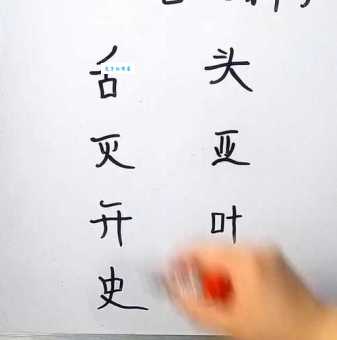 舌 头
灭 亚
开 叶
史